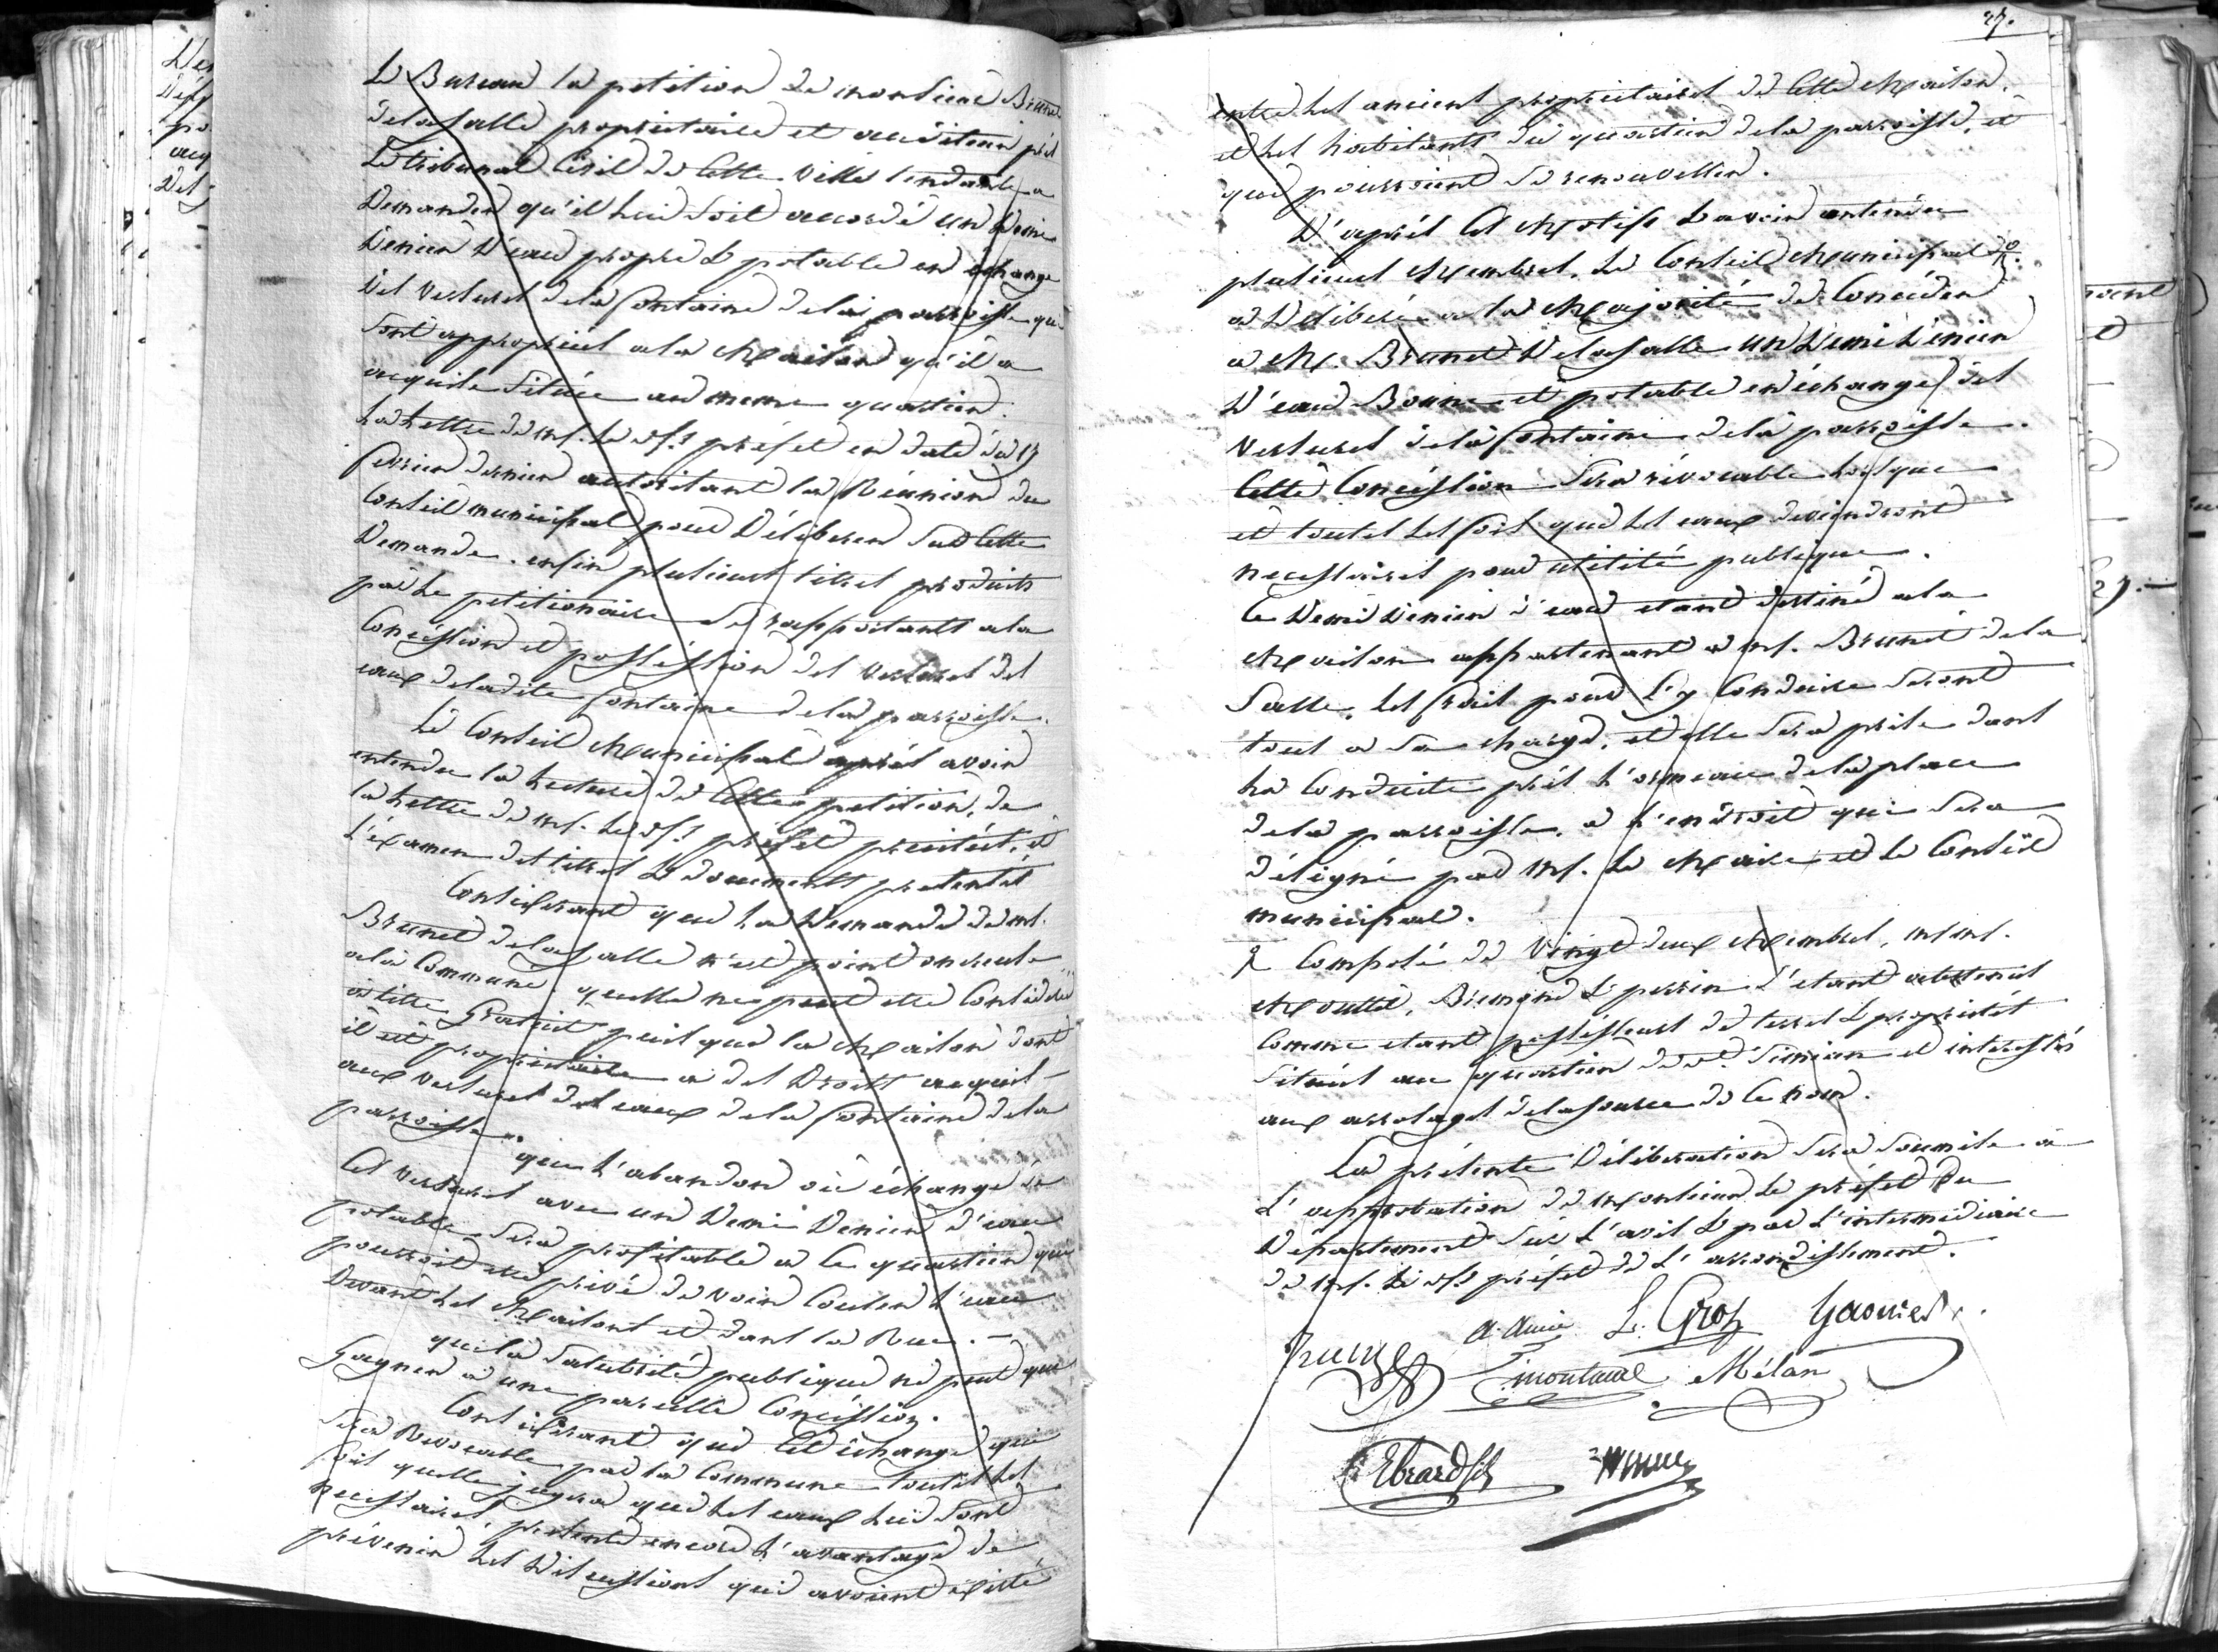 Le Bureau la petition de monsieur Brunet
delasalle proprietaire et auditeur près
Le tribunal Civil de Cette Ville tendante a
Demander qu'il lui soit accordé un Demi
Denier d'eau propre & potable en echange
des versures de la fontaine de la parroisse qui
sont appropriés a la Maison qu'il a
acquise Située au meme quartier.
La Lettre de Mr. Le Sr. préfet en date du 17
fevrier dernier autorisant la Réunion du
Conseil municipal pour Déliberer Sur Cette
Demande. enfin plusieurs titres produits
par Le petitionaire Se rapportants a la
Concéssion et posséssion des versures des
eaux deladite fontaine de la parroisse.
Le Conseil Municipal après avoir
entendu la Lecture de Cette petition, de
la Lettre de Mr. Le Sr. préfet precitées, et
L'éxamen des titres & documents presentés
Considerant que La Demande de Mr.
Brunet delasalle n'est point onereuse
a la Commune quelle ne peut etre Considerée
a titre Gratuit puis que la Maison dont
il est propriétaire a des Droits acquis
aux versures des eaux de la fontaine de la
parroisse
que L'abandon où échange de
Ces versures avec un Demi Denier d'eau
potable Sera profitable a Ce quartier qui
pourroit etre privé de voir Couler L'eau
Devant Les Maisons et dans la Rue.
que la Salubrité publique ne peut que
Gagner a une pareille Concéssion.
Considerant que Cet échange qui
Sera Revocable par la Commune toutes Les
fois quelle jugera que Les eaux Lui sont
necessaires, presente encore L'avantage de
prévenir Les Discussions qui avoient éxisté
27.
entre Les anciens propriétaires de Cette Maison,
et Les habitants du quartier de la parroisse, et
que pourroient Se renouveller.
D'après Ces Motifs & avoir entendu
plusieurs Membres, Le Conseil Municipal
a Deliberé a la Majorité de Conceder
a M. Brunet Delasalle un Demi Denier
D'eau Bonne et potable en échange des
versures de la fontaine de la parroisse.
Cette Concéssion Sera révocable Lorsque
et toutes Les fois que Les eaux deviendront
necessaires pour utilité publique.
Ce Demi Denier d'eau etant destiné a la
Maison appartenant a Mr. Brunet de la
Salle, Les frais pour L'y Conduire Seront
tous a Sa charge, et elle Sera prise dans
La Conduite près L'ormeau de la place
de la parroisse, a L'endroit qui Sera
désigné par Mr. Le Maire et Le Conseil
municipal.
Composé de Vingt deux Membres, MMrs.
Moutte, Bremond & perrin S'etant abstenus
Comme etant possésseurs de terres & propriétés
Situées au quartier de St. Simian et interessés
aux arrosages de la source de Ce nom.
La présente Déliberation Sera Soumise a
L'approbation de Monsieur Le préfet Du
Département Sur L'avis & par L'intermédiaire
de Mr. Le Sr. préfet de L'arrondissement.
L. Gros
montaud Mélan
Ebrard fils